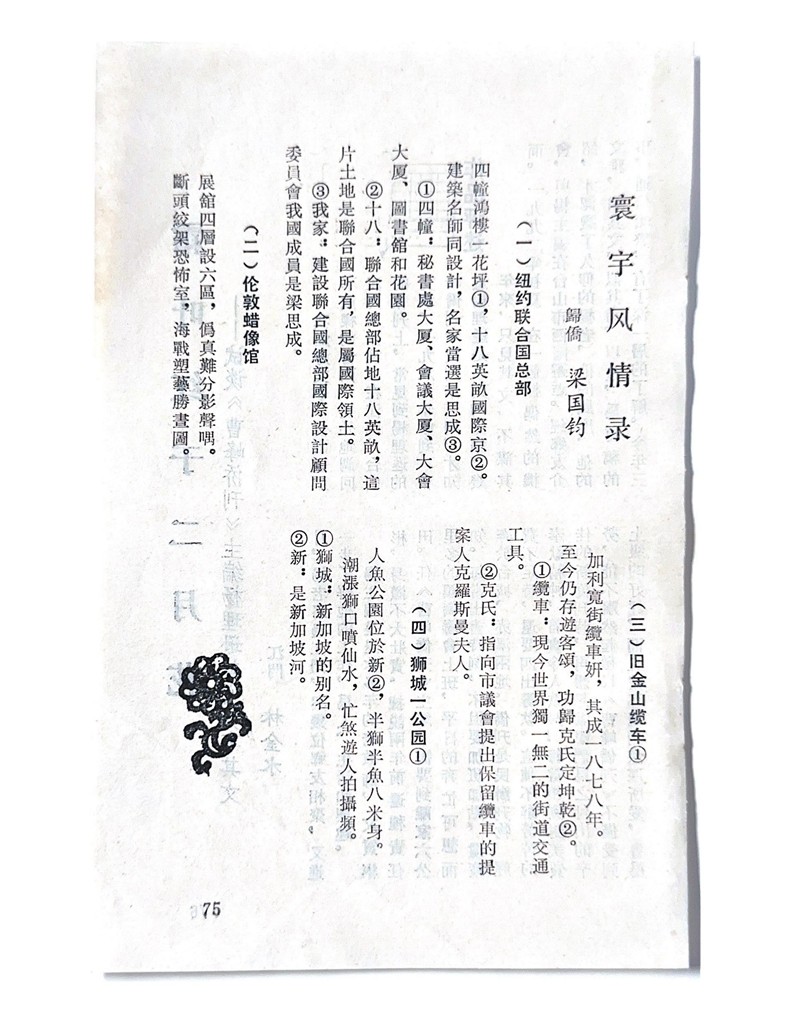 寰宇风情录
歸僑 梁国钧
(一)纽约联合国总部
四幢鴻樓一花坪①,十八英畝國際京②。
建築名師同設計,名家當選是思成③。
①四幢:秘書處大厦、會議大厦、大會
大厦、圖書館和花園。
②十八:聯合國總部佔地十八英畝,這
片土地是聯合國所有,是屬國際領土。
③我家:建設聯合國總部國際設計顧問
委員會我國成員是梁思成。
(二)伦敦蜡像馆
展舘四層設六區,僞真難分影聲喁。
斷頭絞架恐怖室,海戰塑藝勝畫圖。
(三)旧金山缆车①
加利寬街纜車妍,其成一八七八年。
至今仍存遊客頌,功歸克氏定坤乾②。
①纜車:現今世界獨一無二的街道交通
工具。
②克氏:指向市議會提出保留纜車的提
案人克羅斯曼夫人。
(四)狮城一公园①
人魚公園位於新②,半獅半魚八米身。
潮漲獅口噴仙水,忙煞遊人拍攝頻。
①獅城:新加坡的别名。
②新:是新加坡河。
75